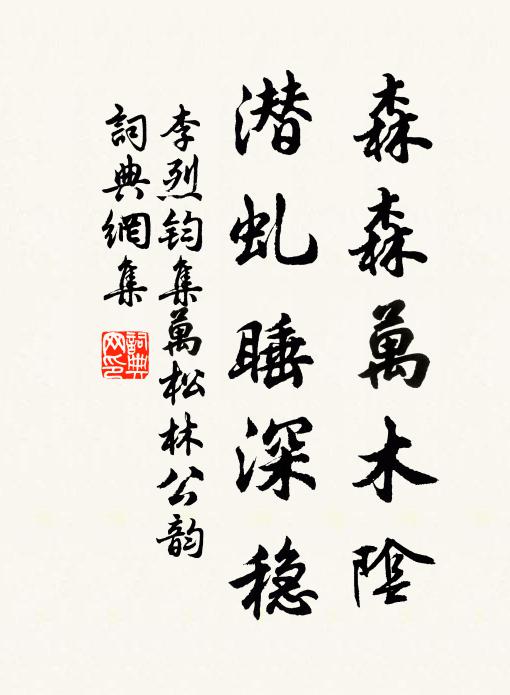 森森萬木陰
潜虬睡深稳
李烈钧集萬松林公韵
詞典網集
詞典網印